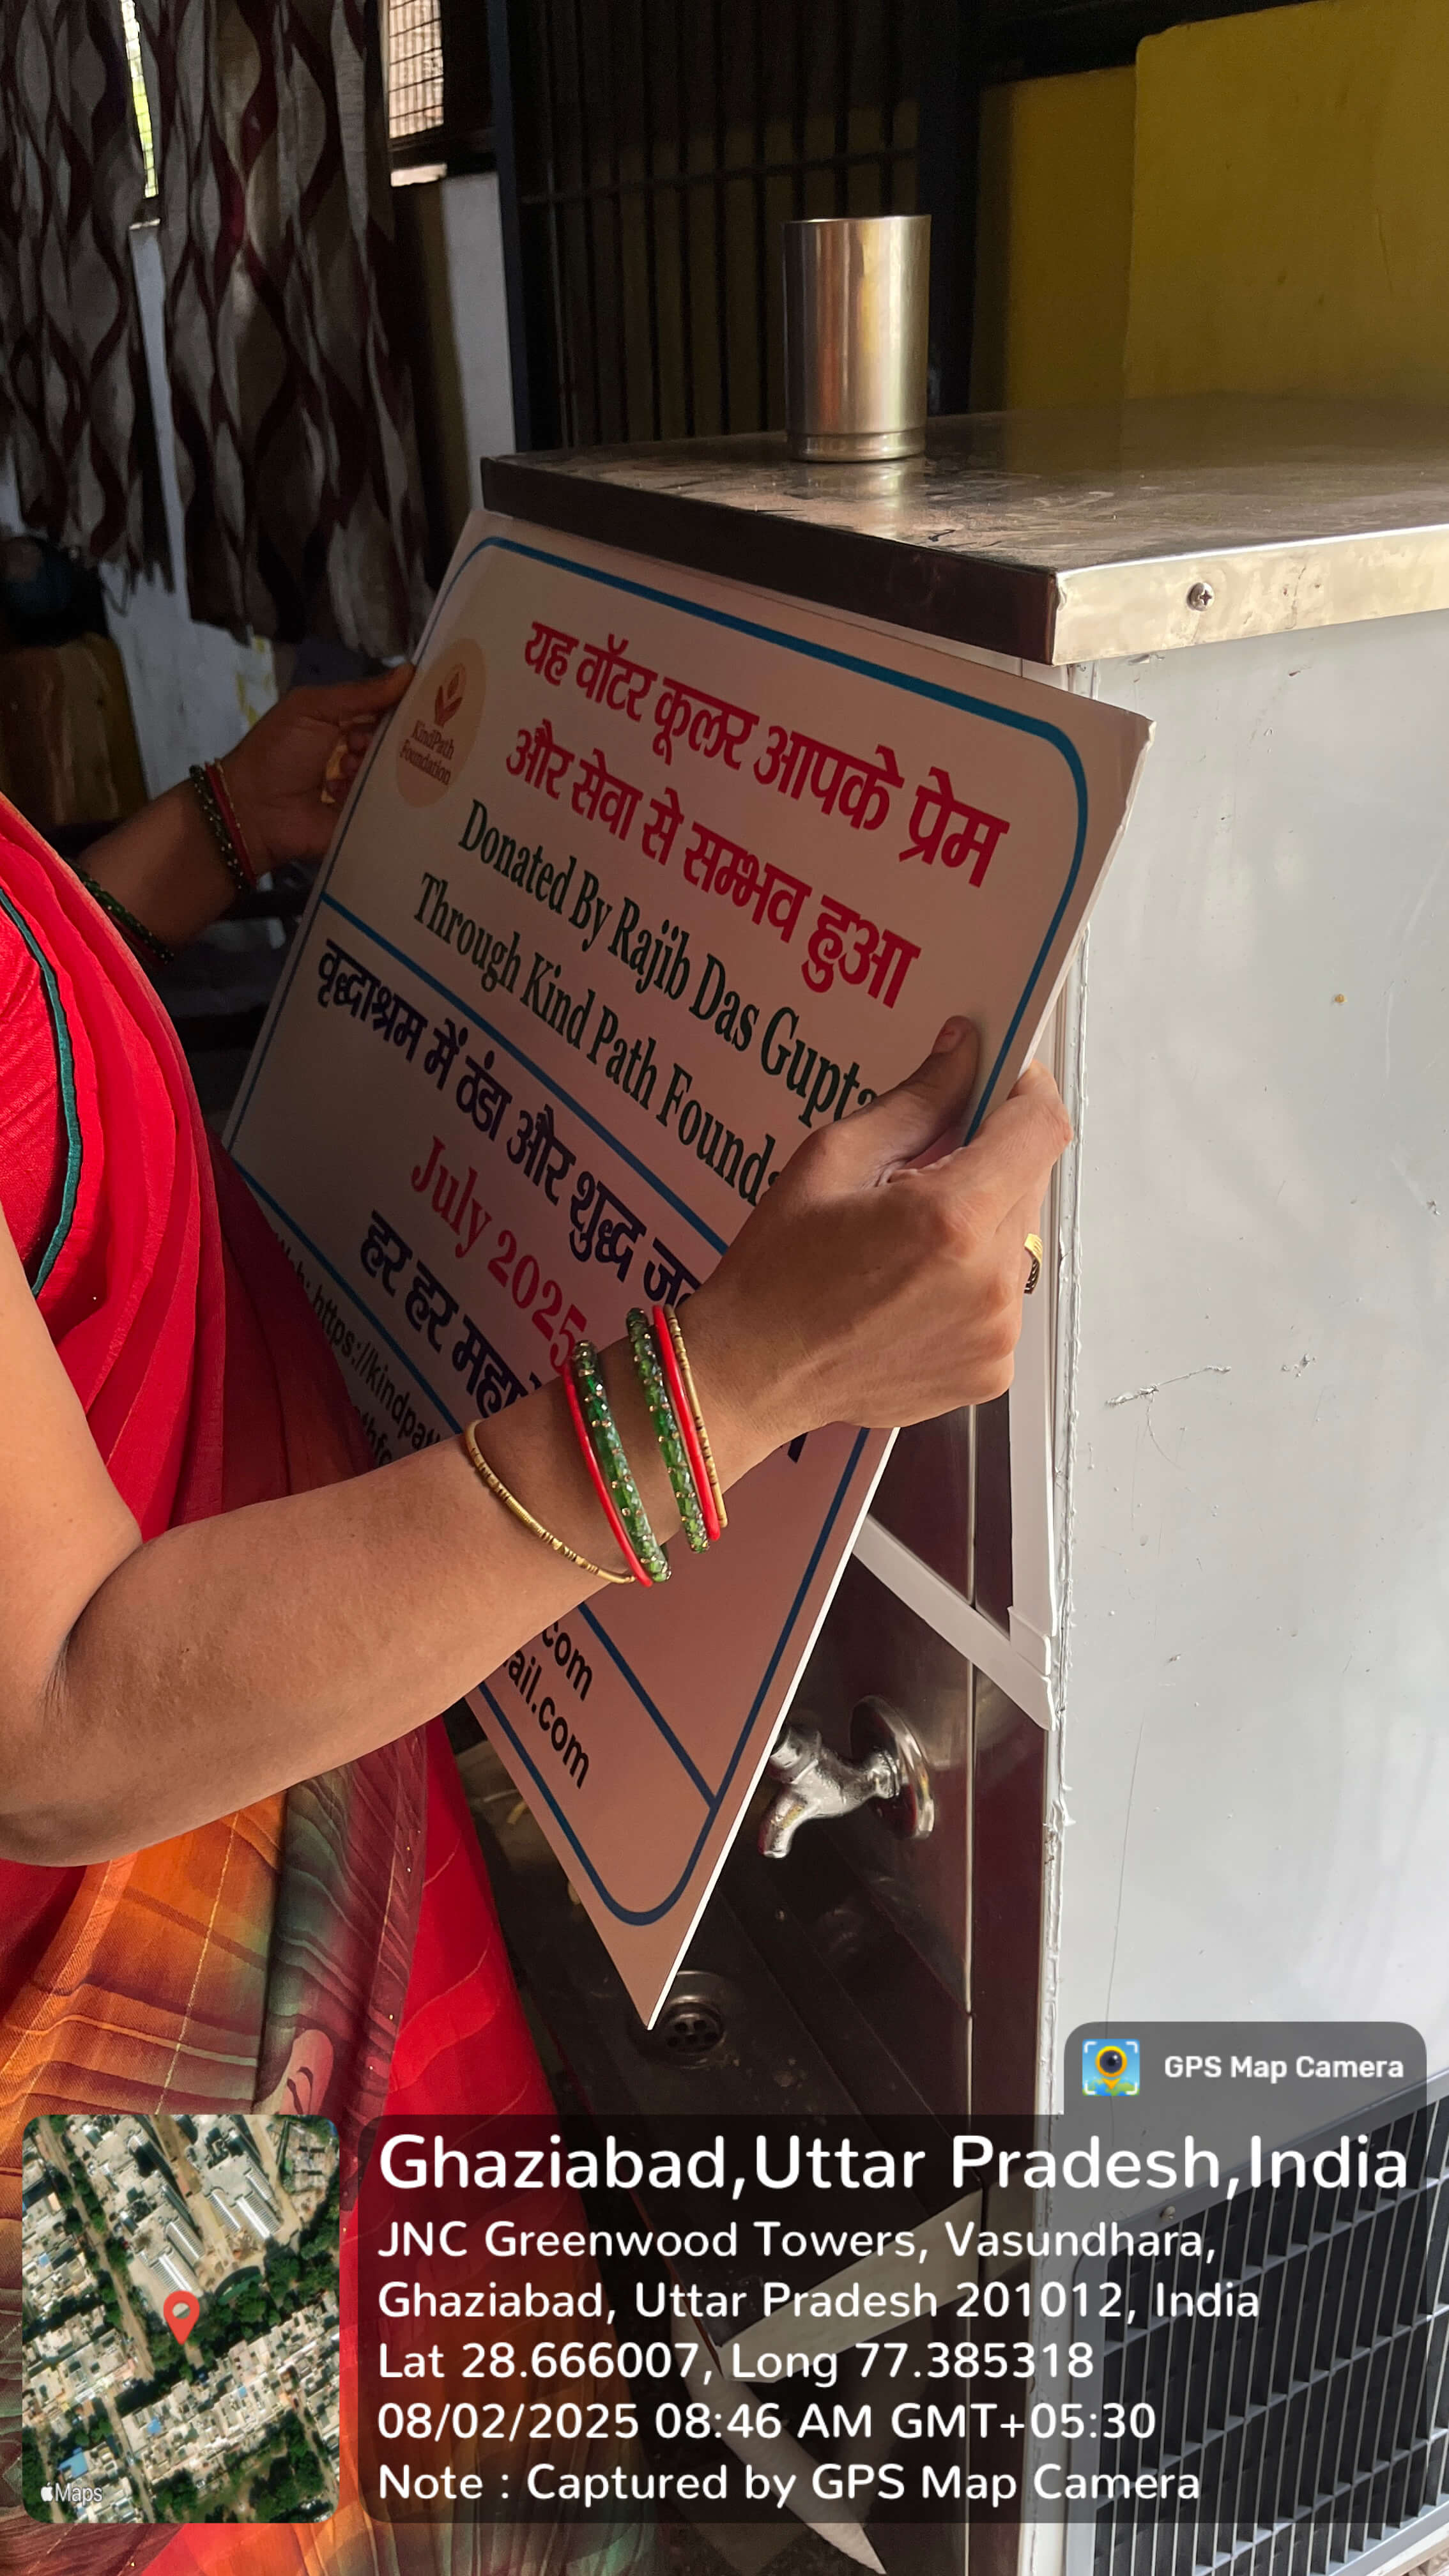 KindPath
Foundation
यह वॉटर कूलर आपके प्रेम
और सेवा से सम्भव हुआ
Donated By Rajib Das Gupta
Through Kind Path
वृद्धाश्रम में ठंडा और शुद्ध
July 2025
हर हर
.com
ail.com
GPS Map Camera
Ghaziabad,Uttar Pradesh,India
JNC Greenwood Towers, Vasundhara,
Ghaziabad, Uttar Pradesh 201012, India
Lat 28.666007, Long 77.385318
08/02/2025 08:46 AM GMT+05:30
Note : Captured by GPS Map Camera
Maps